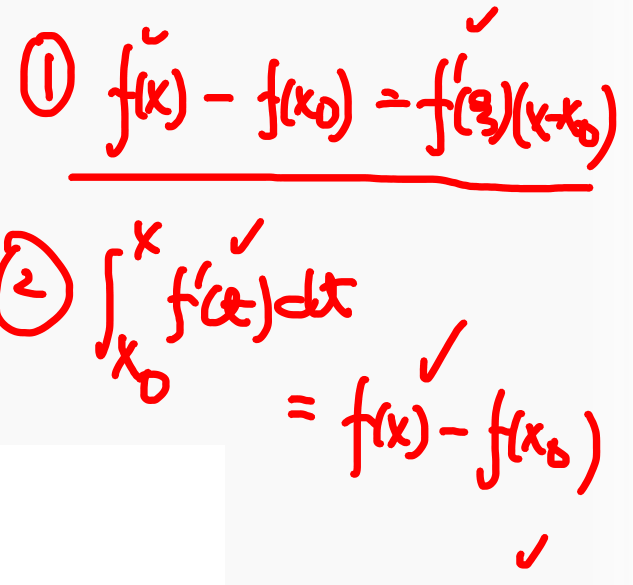 ① f(x) - f(x₀) = f'(ξ)(x-x₀)
② ∫ₓ₀ˣ f'(t)dt
= f(x) - f(x₀)